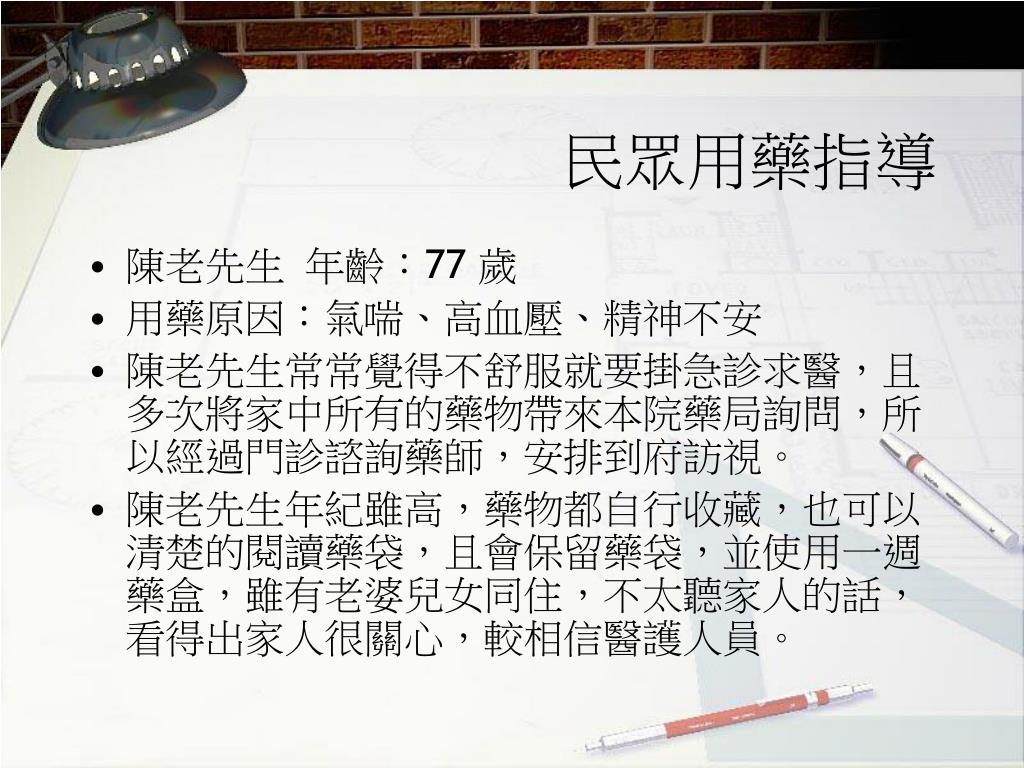 民眾用藥指導
• 陳老先生 年齡：77 歲
• 用藥原因：氣喘、高血壓、精神不安
• 陳老先生常常覺得不舒服就要掛急診求醫，且
多次將家中所有的藥物帶來本院藥局詢問，所
以經過門診諮詢藥師，安排到府訪視。
• 陳老先生年紀雖高，藥物都自行收藏，也可以
清楚的閱讀藥袋，且會保留藥袋，並使用一週
藥盒，雖有老婆兒女同住，不太聽家人的話，
看得出家人很關心，較相信醫護人員。